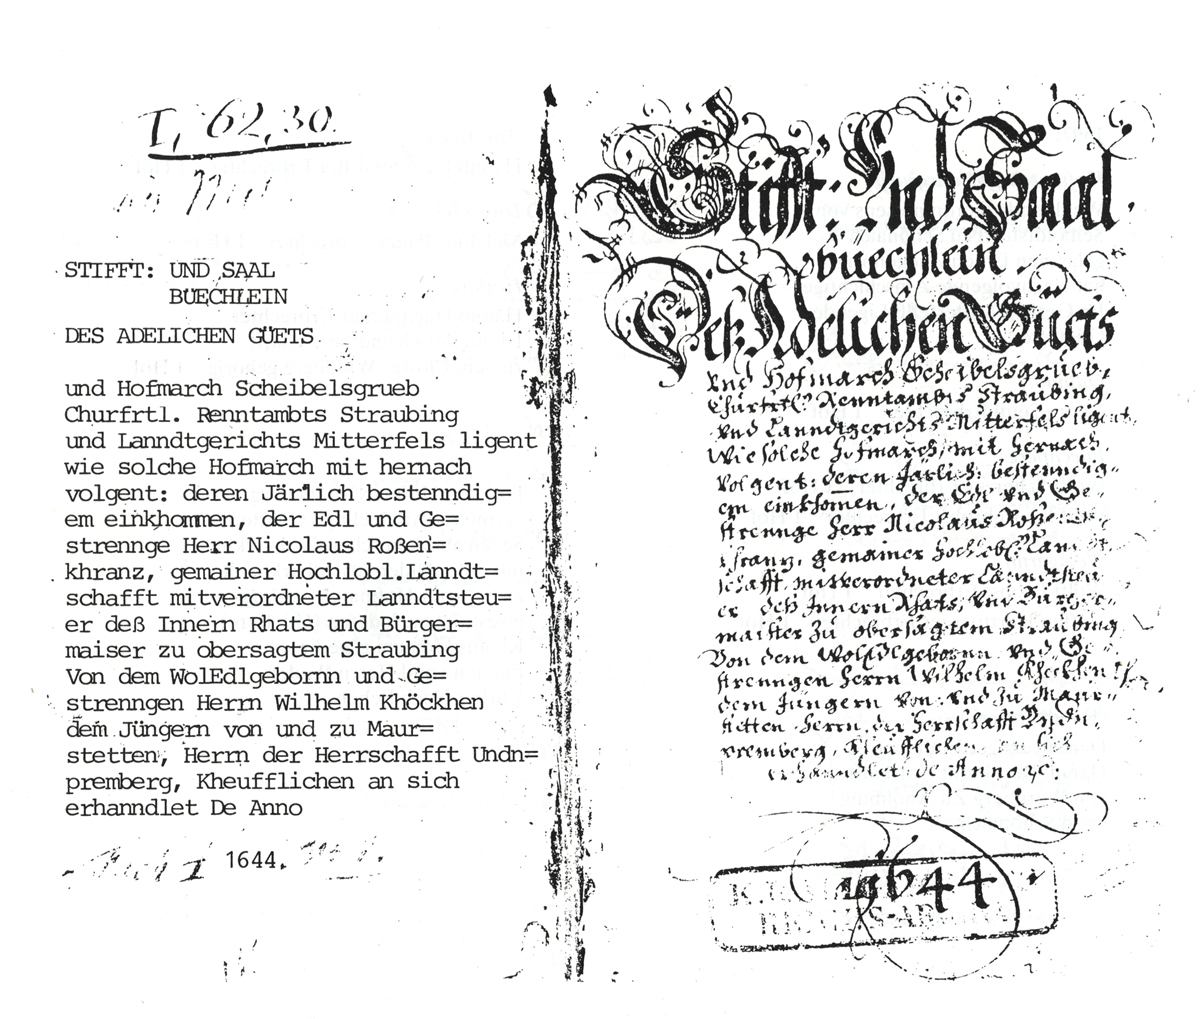 I, 62,30
STIFFT: UND SAAL
BUECHLEIN
DES ADELICHEN GÜETS
und Hofmarch Scheibelsgrueb
Churfrtl. Renntambts Straubing
und Lanndtgerichts Mitterfels ligent
wie solche Hofmarch mit hernach
volgent: deren Järlich bestenndig=
em einkhommen, der Edl und Ge=
strennge Herr Nicolaus Roßen=
khranz, gemainer Hochlobl.Lanndt=
schafft mitverordneter Lanndtsteu=
er deß Innern Rhats und Bürger=
maiser zu obersagtem Straubing
Von dem WolEdlgebornn und Ge=
strenngen Herrn Wilhelm Khöckhen
dem Jüngern von und zu Maur=
stetten, Herrn der Herrschafft Undn=
premberg, Kheufflichen an sich
erhanndlet De Anno
1644.
Stifft: Und Saal
büechlein
Deß Adelichen Güets
vnd Hofmarch Scheibelsgrueb,
Churfrtl. Renntambts Straubing,
vnd Lanndtgerichts Mitterfels ligent,
Wie solche Hofmarch, mit hernach
volgent: deren Järlich: bestenndig=
em einkhom̄en, der Edl vnd Ge=
strennge Herr Nicolaus Roßen=
khranz, gemainer Hochlobl. Lanndt=
schafft mitverordneter Lanndtsteu=
er deß Innern Rhats, vnd Bürger=
maister zu obersagtem Straubing
Von dem WolEdlgebornn vnd Ge=
strenngen Herrn Wilhelm Kheckhen
dem Jüngern von vnd zu Maur=
stetten Herrn der Herrschafft Vndn=
premberg, Kheufflichen an sich
erhanndlet de Anno
1644